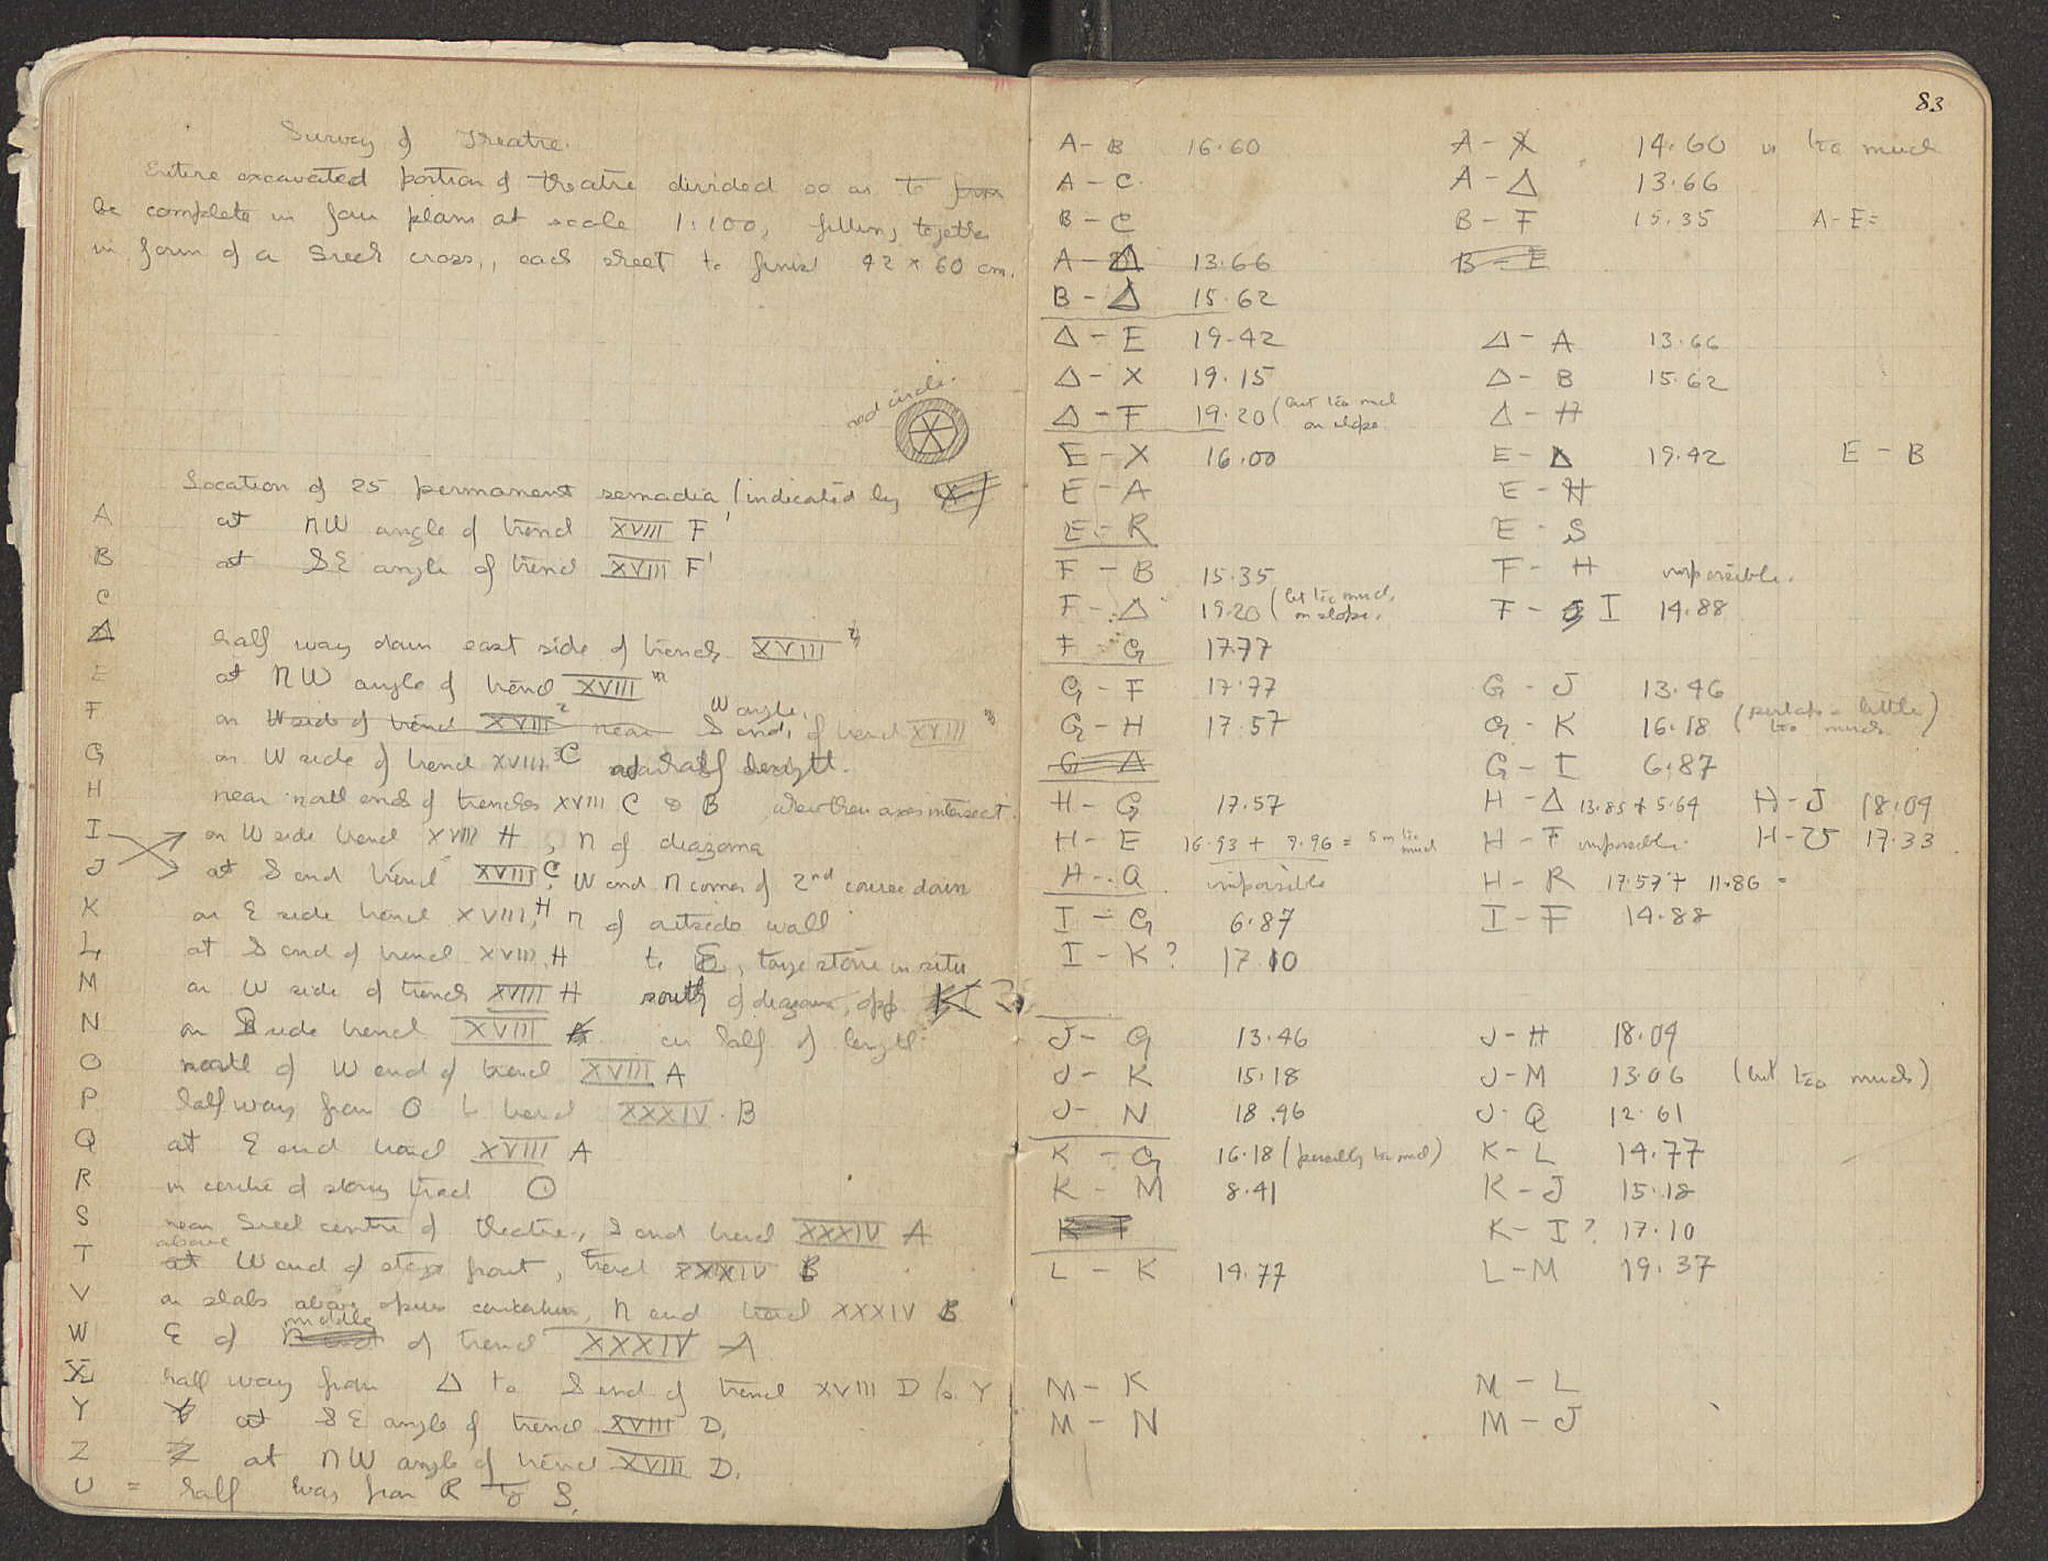 Survey of Theatre.
Entire excavated portion of theatre divided so as to form
be complete in four plans at scale 1:100, fitting together
in form of a Greek cross, each sheet to finish 42 × 60 cm.
red circle.
Location of 25 permanent semadia (indicated by X)
A at NW angle of trench XVIII F
B at SE angle of trench XVIII F'
C
Δ half way down east side of trench XVIII
E at NW angle of trench XVIII
W angle.
F on W side of trench XVIII² near S end, of trench XVIII
G on W side of trench XVIII C at half height.
H near north ends of trenches XVIII C & B where their axes intersect.
I on W side trench XVIII H, N of diazoma
J at S end trench XVIII C, W end N corner of 2nd course down
K on E side trench XVIII H, N of outside wall
L at S end of trench XVIII H to E, large stone in situ
M on W side of trench XVIII H south of diazoma, opp. K
N on side trench XVIII in half of length
O north of W end of trench XVIII A
P half way from O to trench XXXIV. B
Q at E end trench XVIII A
R in centre of stony tract O
S near Greek centre of theatre, S end trench XXXIV A
above
T at W end of stage front, trench XXXIV B
V on slabs above opus N end trench XXXIV B
middle
W E of of trench XXXIV A
X half way from Δ to S end of trench XVIII D to Y
Y Y at SE angle of trench XVIII D.
Z Z at NW angle of trench XVIII D.
U = half way from R to S.
83
A - B 16.60 A - X 14.60 is too much
A - C A - Δ 13.66
B - C B - F 15.35 A-E=
A - Δ 13.66 B - E
B - Δ 15.62
Δ - E 19.42 Δ - A 13.66
Δ - X 19.15 Δ - B 15.62
Δ - F 19.20 (but too much on slope Δ - H
E - X 16.00 E - Δ 19.42 E - B
E - A E - H
E - R E - S
F - B 15.35 F - H impossible.
F - Δ 19.20 (but too much, on slope. F - I 14.88
F - G 17.77
G - F 17.77 G - J 13.46
G - H 17.57 G - K 16.18 (perhaps a little too much)
G - Δ G - I 6.87
H - G 17.57 H - Δ 13.85 + 5.64 H - J 18.04
H - E 16.93 + 9.96 = 5m too much H - F impossible. H - 17.33
H - Q impossible H - R 17.57 + 11.86 =
I - G 6.87 I - F 14.88
I - K? 17.10
J - G 13.46 J - H 18.04
J - K 15.18 J - M 13.06 (but too much)
J - N 18.46 J - Q 12.61
K - G 16.18 (possibly too much) K - L 14.77
K - M 8.41 K - J 15.18
K - I K - I? 17.10
L - K 14.77 L - M 19.37
M - K M - L
M - N M - J